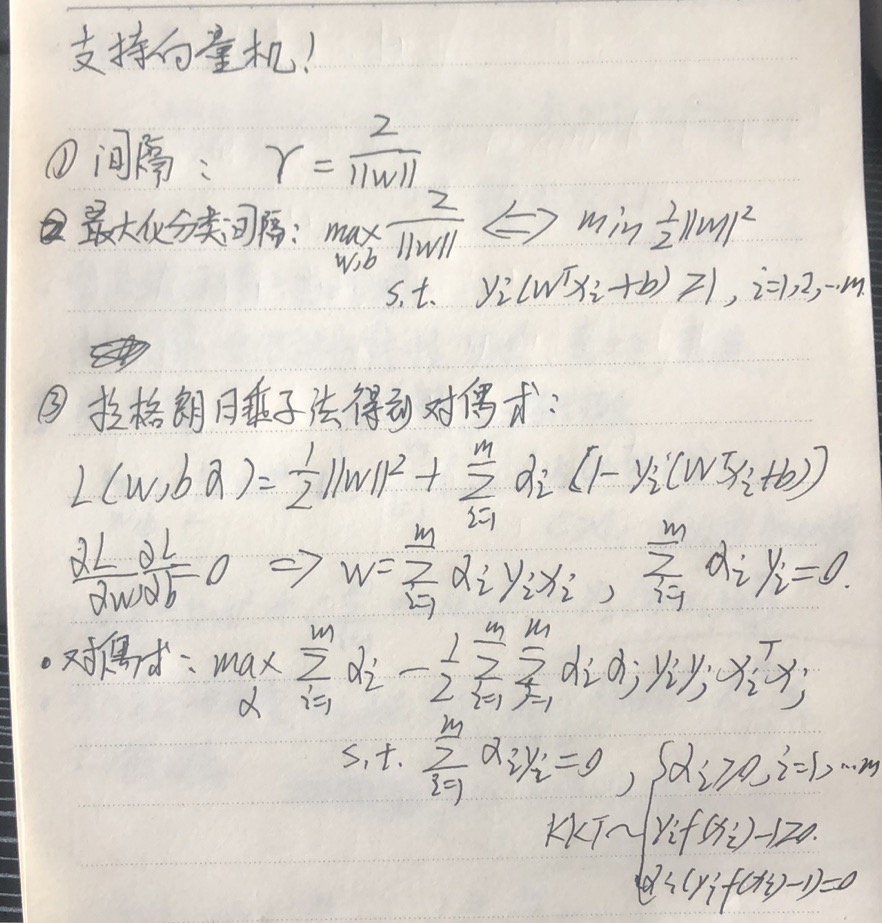 支持向量机!
① 间隔: γ = 2/||w||
② 最大化分类间隔: max_{w,b} 2/||w|| ⇔ min 1/2||w||²
s.t. yᵢ(wᵀxᵢ+b) ≥1, i=1,2,…m.
③ 拉格朗日乘子法得到对偶式:
L(w,b,α) = 1/2||w||² + ∑_{i=1}^{m} αᵢ(1-yᵢ(wᵀxᵢ+b))
∂L/∂w, ∂L/∂b = 0 ⇒ w = ∑_{i=1}^{m} αᵢyᵢxᵢ, ∑_{i=1}^{m} αᵢyᵢ=0.
• 对偶式: max_α ∑_{i=1}^{m} αᵢ - 1/2 ∑_{i=1}^{m} ∑_{j=1}^{m} αᵢαⱼyᵢyⱼxᵢᵀxⱼ
s.t. ∑_{i=1}^{m} αᵢyᵢ=0, { αᵢ≥0, i=1,…m
KKT~ yᵢf(xᵢ)-1≥0.
αᵢ(yᵢf(xᵢ)-1)=0